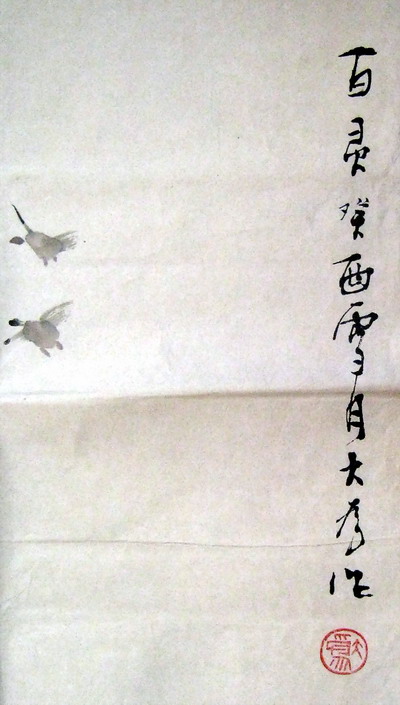 百灵癸酉雪月大为作